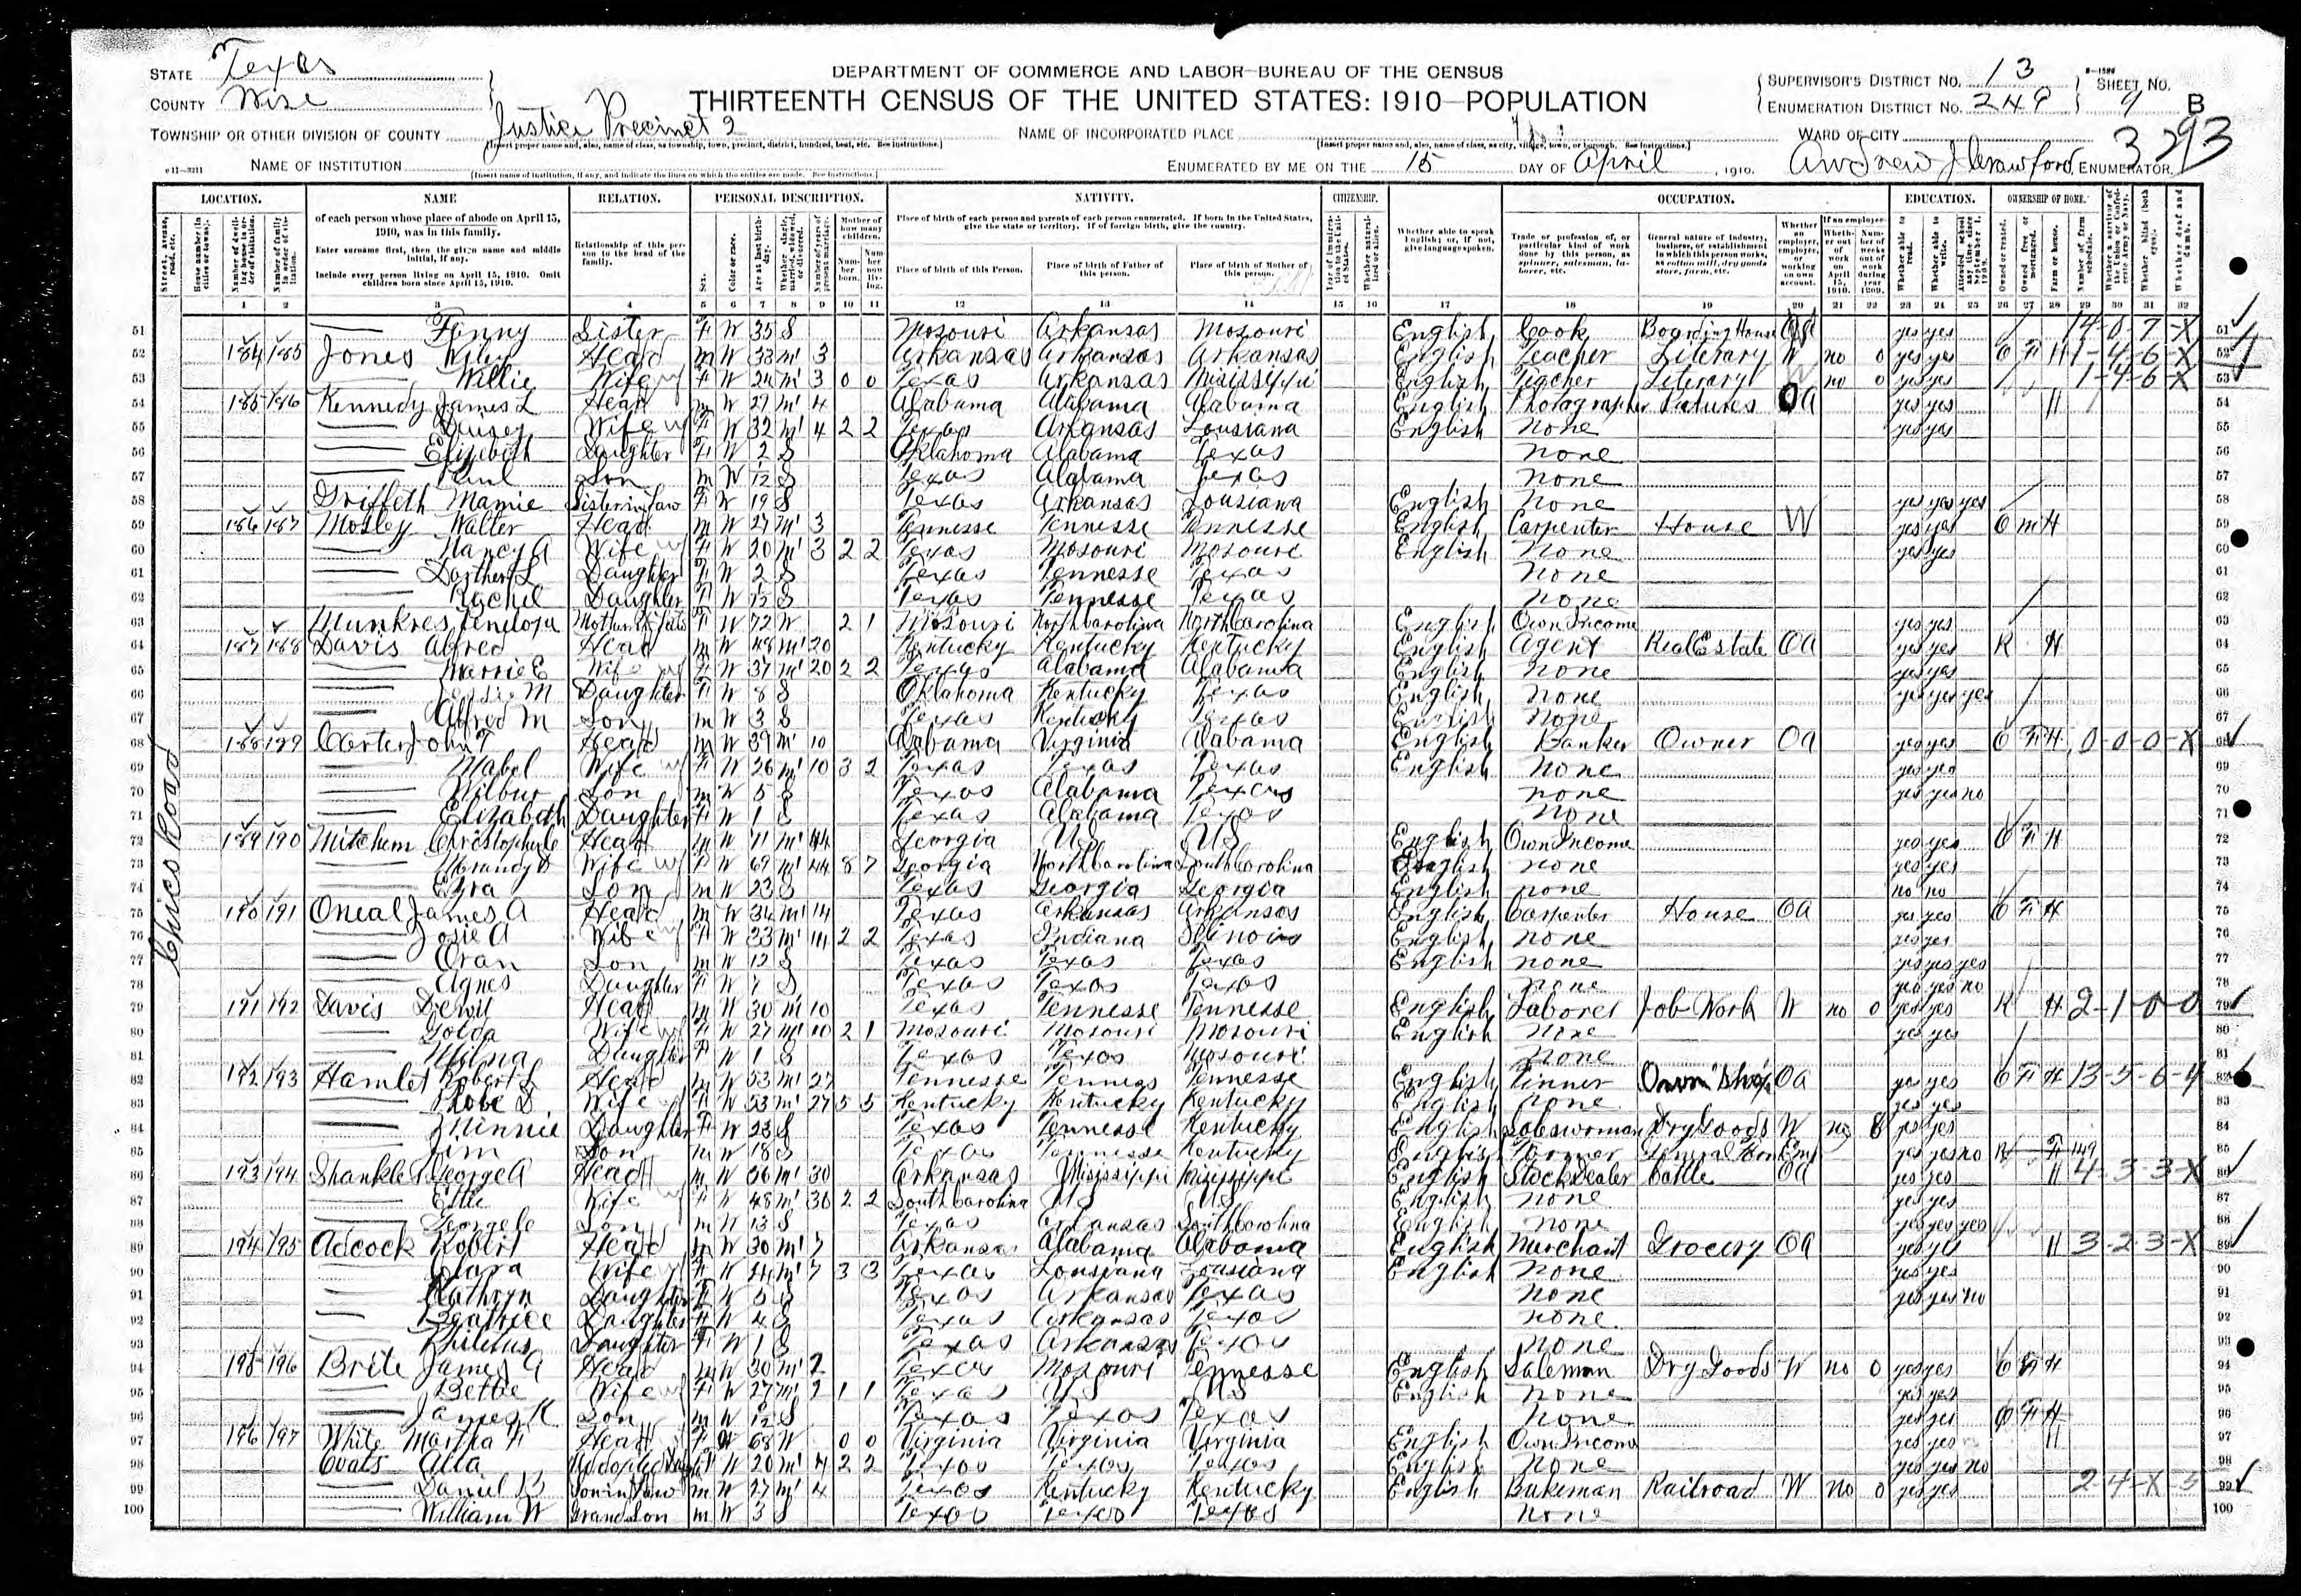 STATE Texas
COUNTY Wise
TOWNSHIP OR OTHER DIVISION OF COUNTY Justice Precinct 2
NAME OF INSTITUTION
DEPARTMENT OF COMMERCE AND LABOR—BUREAU OF THE CENSUS
THIRTEENTH CENSUS OF THE UNITED STATES: 1910—POPULATION
NAME OF INCORPORATED PLACE
ENUMERATED BY ME ON THE 15 DAY OF April, 1910.
SUPERVISOR'S DISTRICT No. 13
ENUMERATION DISTRICT No. 249
SHEET No. 9 B
WARD OF CITY
3293
Andrew J Crawford, ENUMERATOR.
LOCATION. NAME RELATION. PERSONAL DESCRIPTION. NATIVITY. CITIZENSHIP. OCCUPATION. EDUCATION. OWNERSHIP OF HOME.
of each person whose place of abode on April 15, 1910, was in this family.
Enter surname first, then the given name and middle initial, if any.
Include every person living on April 15, 1910. Omit children born since April 15, 1910.
Relationship of this person to the head of the family.
Place of birth of each person and parents of each person enumerated. If born in the United States, give the state or territory. If of foreign birth, give the country.
Place of birth of this Person. Place of birth of Father of this person. Place of birth of Mother of this person.
Whether able to speak English; or, if not, give language spoken.
1 2 3 4 5 6 7 8 9 10 11 12 13 14 15 16 17 18 19 20 21 22 23 24 25 26 27 28 29 30 31 32
Chico Road
51 Fanny Sister F W 35 S Mosouri Arkansas Mosouri English Cook Boarding House yes yes 14-0-7-X 51
52 184 185 Jones Wiley Head m W 33 m1 3 Arkansas Arkansas Arkansas English Teacher Literary W no 0 yes yes O F H 1-4-6-X 52
53 Willie Wife F W 24 m1 3 0 0 Texas Arkansas Mississippi English Teacher Literary W no 0 yes yes 1-4-6-X 53
54 185 186 Kennedy James L Head m W 27 m1 4 Alabama Alabama Alabama English Photographer Pictures OA yes yes H 54
55 Wife F W 32 m1 4 2 2 Texas Arkansas Lousiana English None yes yes 55
56 Elizebeth Daughter F W 2 S Oklahoma Alabama Texas None 56
57 Paul Son m W S Texas Alabama Texas None 57
58 Griffeth Mamie Sister in Law F W 19 S Texas Arkansas Lousiana English None yes yes yes 58
59 186 187 Mosley Walter Head m W 27 m1 3 Tennesse Tennesse Tennesse English Carpenter House W yes yes O m H 59
60 Nancy A Wife F W 20 m1 3 2 2 Texas Mosouri Mosouri English None yes yes 60
61 Daughter F W 2 S Texas Tennesse Texas None 61
62 Rachel Daughter F W S Texas Tennesse Texas None 62
63 Munkres F W 72 W 2 1 Mosouri North Carolina North Carolina English Own Income yes yes 63
64 187 188 Davis Alfred Head m W 48 m1 20 Kentucky Kentucky Kentucky English Agent Real Estate OA yes yes R H 64
65 Wife F W 37 m1 20 2 2 Texas Alabama Alabama English None yes yes 65
66 Jessie M Daughter F W 8 S Oklahoma Kentucky Texas English None yes yes yes 66
67 Alfred M Son m W 3 S Texas Kentucky Texas English None 67
68 188 189 Carter John T Head m W 39 m1 10 Alabama Virginia Alabama English Banker Owner OA yes yes O F H 0-0-0-X 68
69 Mabel Wife F W 26 m1 10 3 2 Texas Texas Texas English None yes yes 69
70 Wilbur Son m W 5 S Texas Alabama Texas none yes yes no 70
71 Elizabeth Daughter F W 1 S Texas Alabama Texas None 71
72 189 190 Mitchem Head m W 71 m1 44 Georgia US US English Own Income yes yes O F H 72
73 Wife F W 69 m1 44 8 7 Georgia North Carolina South Carolina English None yes yes 73
74 Ezra Son m W 23 S Texas Georgia Georgia English none no no 74
75 190 191 Oneal James A Head m W 34 m1 14 Texas Arkansas Arkansas English Carpenter House OA yes yes O F H 75
76 Josie A Wife F W 33 m1 14 2 2 Texas Indiana Illinois English none yes yes 76
77 Oran Son m W 12 S Texas Texas Texas English none yes yes yes 77
78 Agnes Daughter F W 7 S Texas Texas Texas none yes yes no 78
79 191 192 Davis Head m W 30 m1 10 Texas Tennesse Tennesse English Laborer Job Work W no 0 yes yes R H 2-1-0-0 79
80 Golda Wife F W 27 m1 10 2 1 Mosouri Mosouri Mosouri English None yes yes 80
81 Daughter F W 1 S Texas Texas Mosouri None 81
82 192 193 Hamlet Robert L Head m W 53 m1 27 Tennesse Tennesse Tennesse English Tinner Own Shop OA yes yes O F H 13-5-6-4 82
83 Phobe D. Wife F W 53 m1 27 5 5 Kentucky Kentucky Kentucky English none yes yes 83
84 Minnie Daughter F W 23 S Texas Tennesse Kentucky English Saleswoman Dry Goods W no 8 yes yes 84
85 Jim Son m W 18 S Texas Tennesse Kentucky English Farmer General Farm Emp yes yes no R F 149 85
86 193 194 Shankle George A Head m W 56 m1 30 Arkansas Mississippi Mississippi English Stock Dealer Cattle OA yes yes H 4-3-3-X 86
87 Effie Wife F W 48 m1 30 2 2 South Carolina US US English none yes yes 87
88 George C Son m W 13 S Texas Arkansas South Carolina English none yes yes yes 88
89 194 195 Adcock Robert Head m W 30 m1 7 Arkansas Alabama Alabama English Merchant Grocery OA yes yes H 3-2-3-X 89
90 Clara Wife F W 24 m1 7 3 3 Texas Lousiana Lousiana English None yes yes 90
91 Kathryn Daughter F W 5 S Texas Arkansas Texas None yes yes no 91
92 Beatrice Daughter F W 4 S Texas Arkansas Texas none 92
93 Daughter F W 1 S Texas Arkansas Texas none 93
94 195 196 Brite James A Head m W 30 m1 2 Texas Mosouri Tennesse English Saleman Dry Goods W no 0 yes yes O F H 94
95 Wife F W 27 m1 2 1 1 Texas US US English none yes yes 95
96 James K Son m W S Texas Texas Texas None yes yes O F H 96
97 196 197 White Martha F Head F W 68 W 0 0 Virginia Virginia Virginia English Own Income yes yes H 97
98 Coats Alta Adopted F W 20 m1 4 2 2 Texas Texas Texas English None yes yes no 98
99 Daniel B Son in Law m W 27 m1 4 Texas Kentucky Kentucky English Bakeman Railroad W no 0 yes yes 2-4-X-5 99
100 William W Grand Son m W 3 S Texas Texas Texas None 100